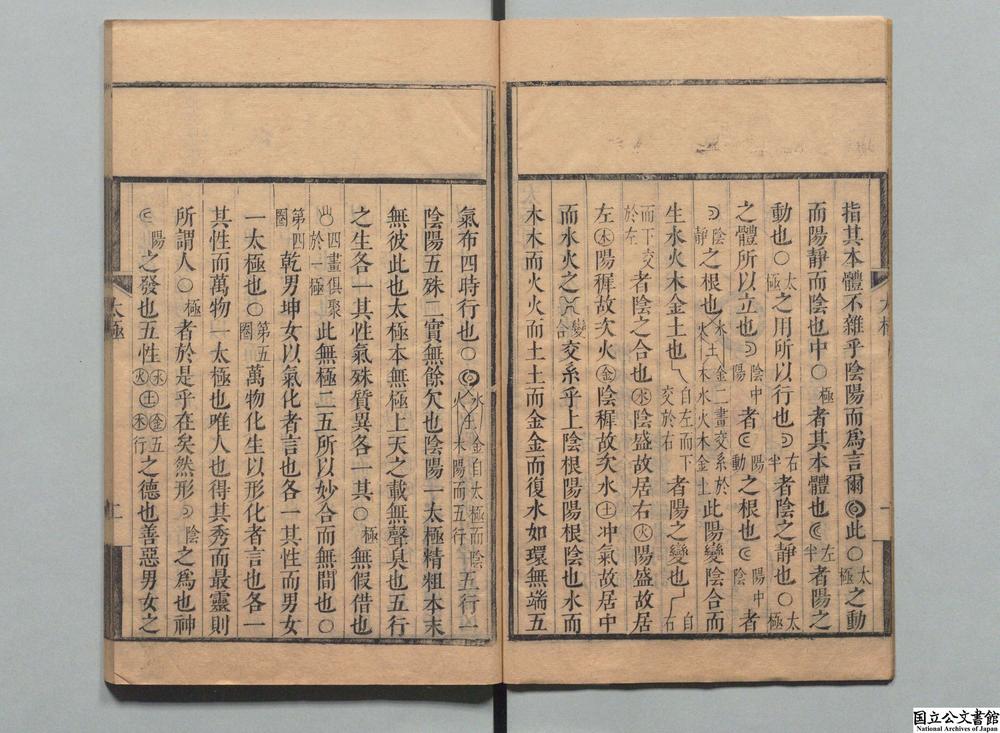 指其本體不雜乎陰陽而爲言爾◉此○太極之動
而陽靜而陰也中○極者其本體也☾左半者陽之
動也○太極之用所以行也☽右半者陰之靜也○太極
之體所以立也☽陰中陽者☾陽動之根也☾陽中陰者
☽陰靜之根也水火土木金二畫交系於水火木金土此陽變陰合而
生水火木金土也自左而下交於右者陽之變也自右
而下交於左者陰之合也㊌陰盛故居右㊋陽盛故居
左㊍陽穉故次火㊎陰穉故次水㊏冲氣故居中
而水火之變合交系乎上陰根陽陽根陰也水而
木木而火火而土土而金金而復水如環無端五
氣布四時行也○◉水火土木金自太極而陰陽而五行五行一
陰陽五殊二實無餘欠也陰陽一太極精粗本末
無彼此也太極本無極上天之載無聲臭也五行
之生各一其性氣殊質異各一其○極無假借也
四畫俱聚於一極此無極二五所以妙合而無間也○
第四圈乾男坤女以氣化者言也各一其性而男女
一太極也○第五圈萬物化生以形化者言也各一
其性而萬物一太極也唯人也得其秀而最靈則
所謂人○極者於是乎在矣然形☽陰之爲也神
☾陽之發也五性㊌㊋㊏㊎㊍五行之德也善惡男女之
太極
太極
一
国立公文書館
National Archives of Japan